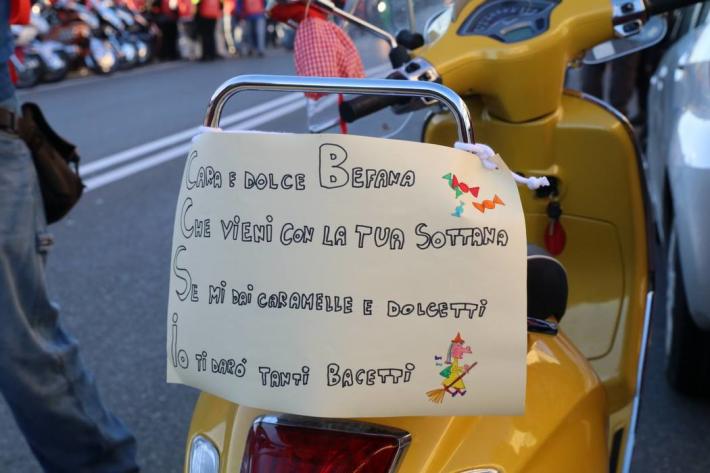 Cara e dolce Befana
Che vieni con la tua Sottana
Se mi dai caramelle e dolcetti
Io ti darò tanti Bacetti